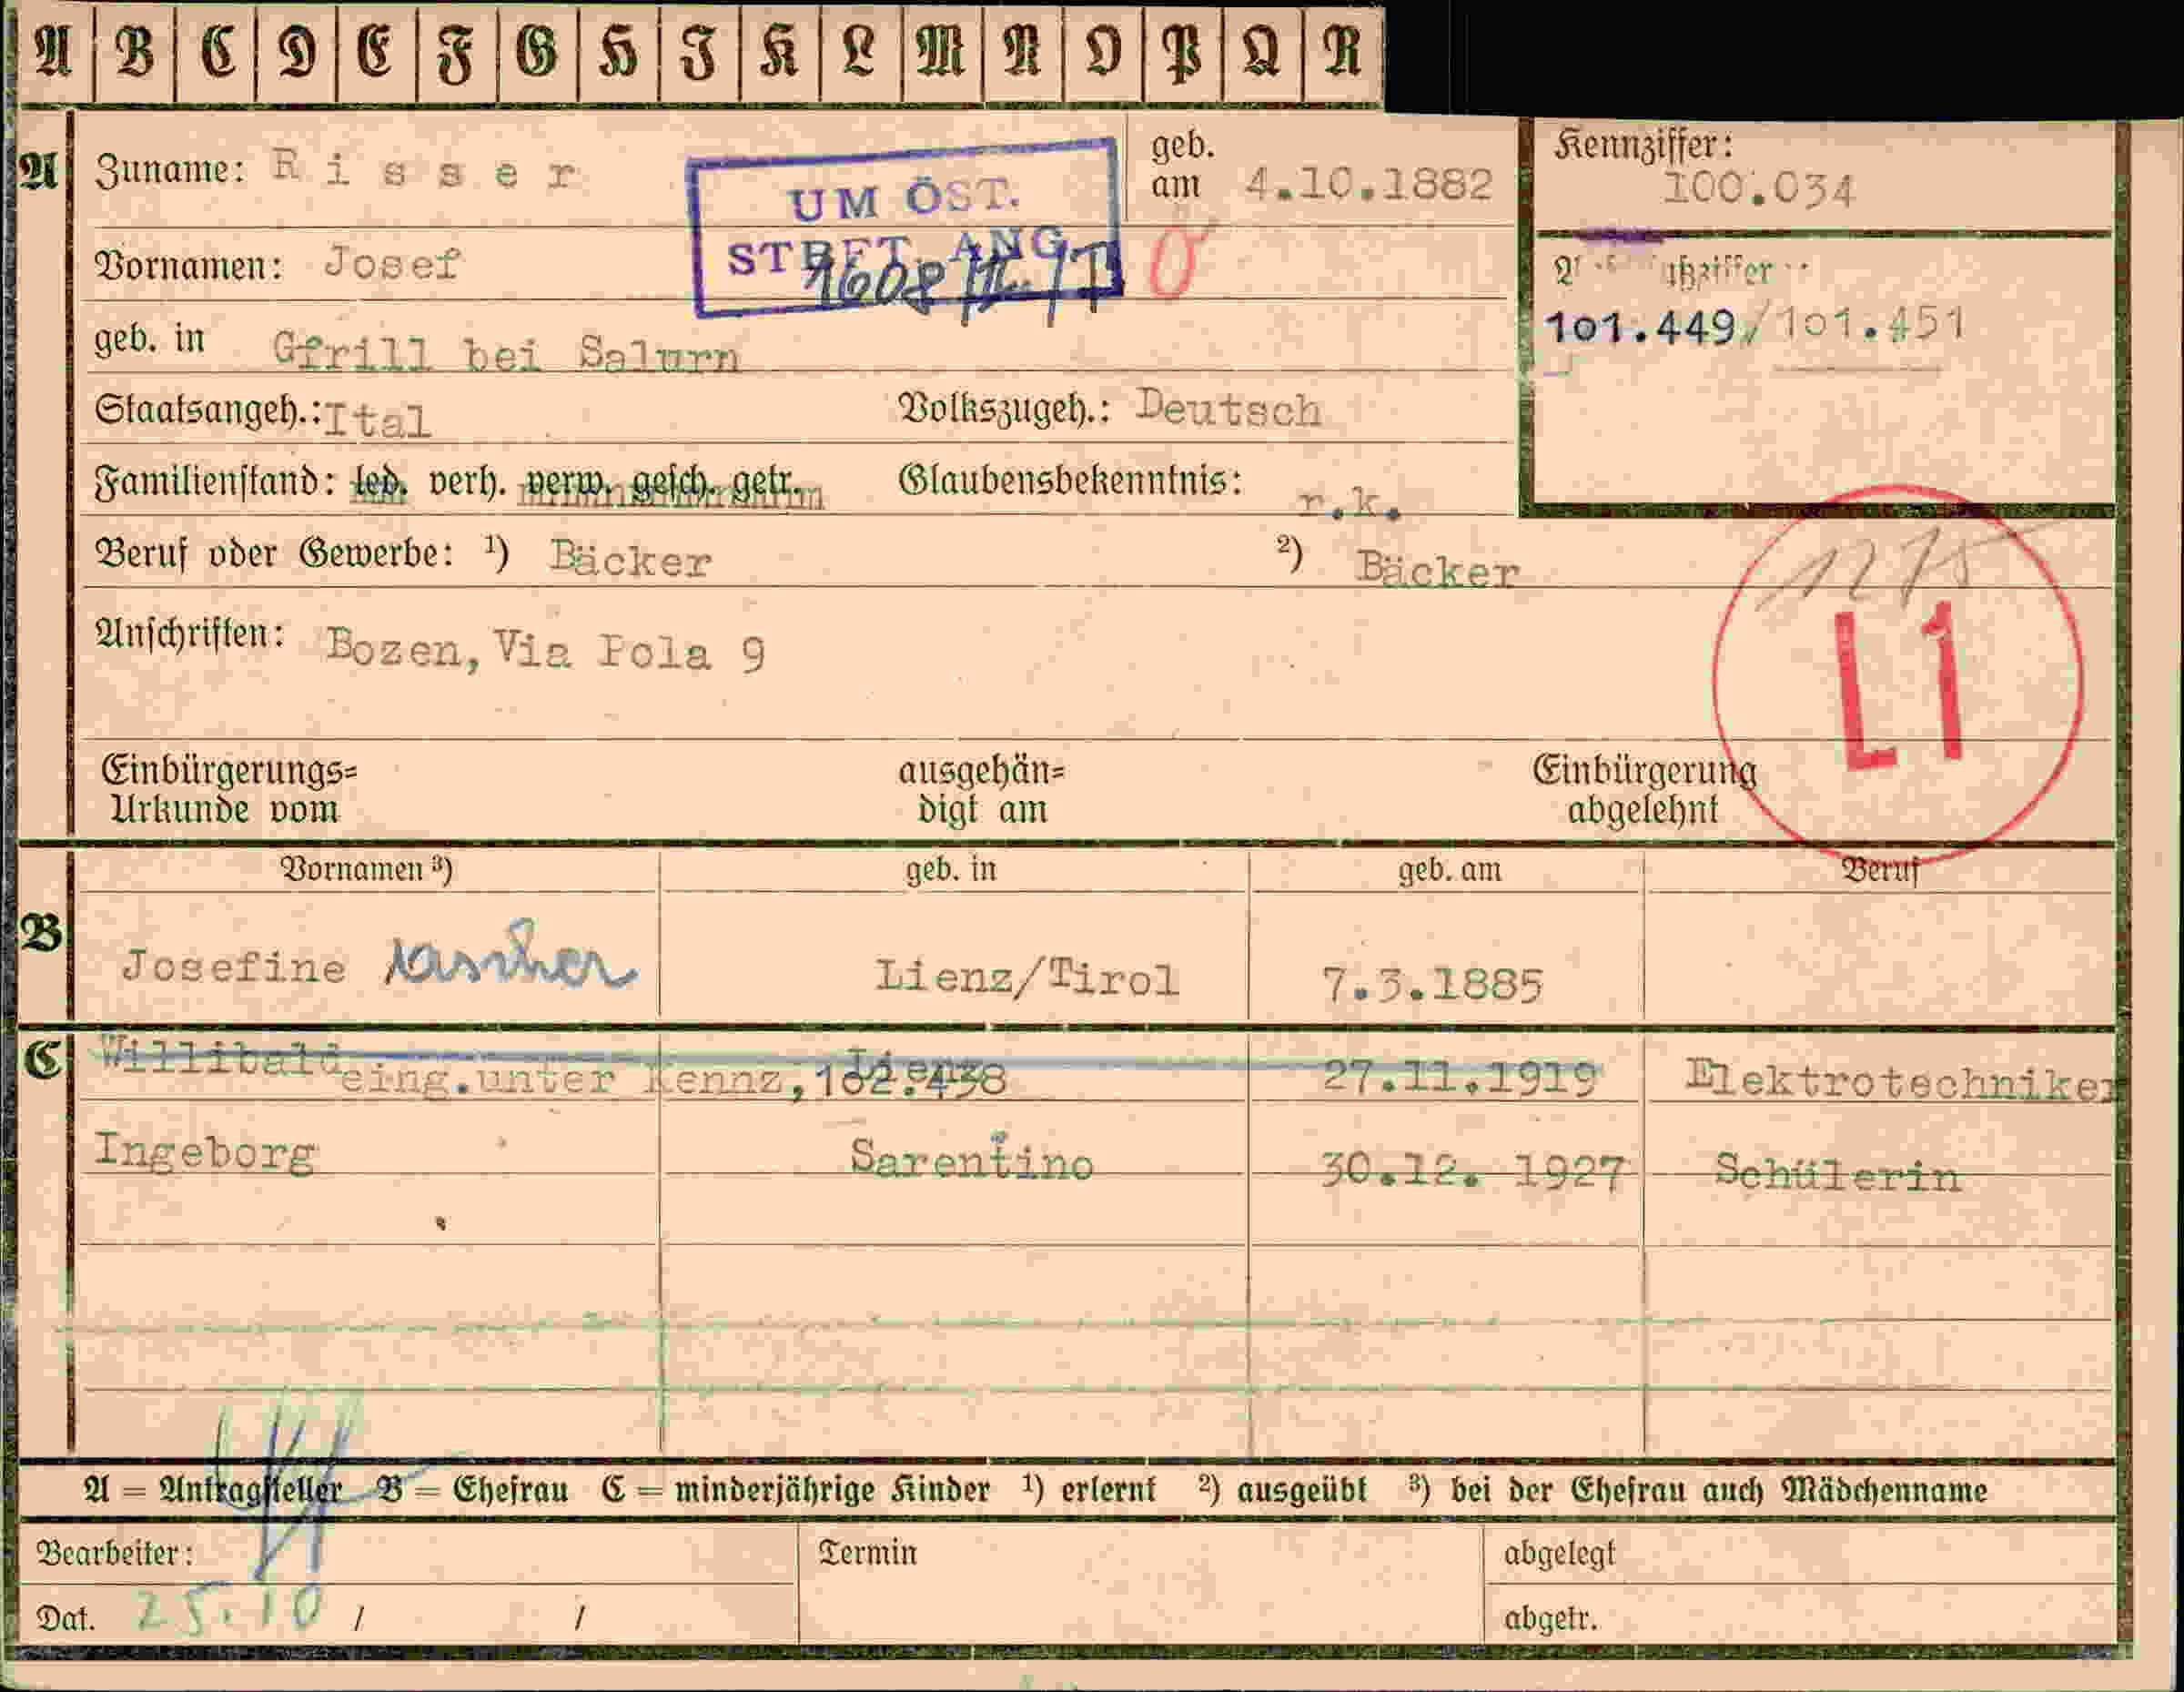 A B C D E F G H I K L M N O P Q R
A Zuname: Risser geb. am 4.10.1882 Kennziffer: 100.034
UM ÖST.
STBFT. ANG.
Vornamen: Josef
101.449/101.451
geb. in Gfrill bei Salurn
Staatsangeh.: Ital Volkszugeh.: Deutsch
Familienstand: led. verh. verw. gesch. getr. Glaubensbekenntnis: r.k.
Beruf oder Gewerbe: ¹) Bäcker ²) Bäcker
1275
L1
Anschriften: Bozen, Via Pola 9
Einbürgerungs= Urkunde vom ausgehän= digt am Einbürgerung abgelehnt
Vornamen ³) geb. in geb. am Beruf
B Josefine Lienz/Tirol 7.3.1885
C Willibald eing.unter Kennz, 102.438 Lienz 27.11.1919 Elektrotechniker
Ingeborg Sarentino 30.12. 1927 Schülerin
A = Antragsteller B = Ehefrau C = minderjährige Kinder ¹) erlernt ²) ausgeübt ³) bei der Ehefrau auch Mädchenname
Bearbeiter: Termin abgelegt
Dat. 25.10 / / abgetr.